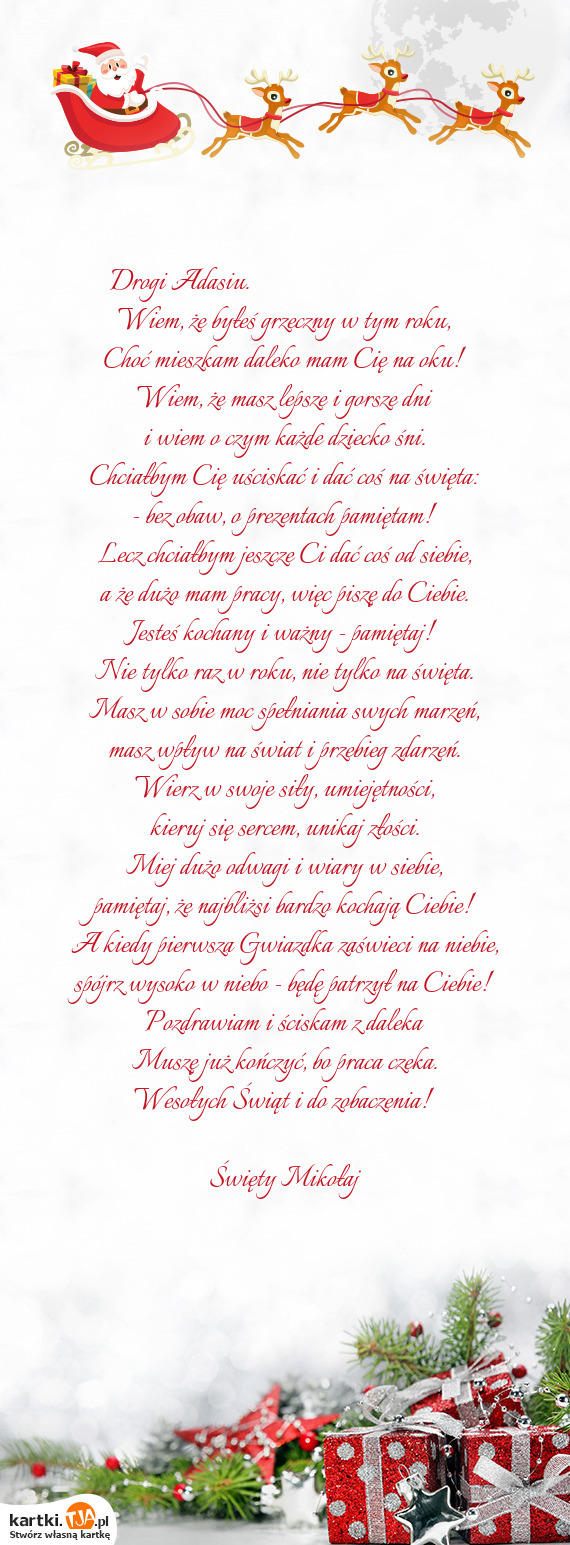 Drogi Adasiu.
Wiem, że byłeś grzeczny w tym roku,
Choć mieszkam daleko mam Cię na oku!
Wiem, że masz lepsze i gorsze dni
i wiem o czym każde dziecko śni.
Chciałbym Cię uściskać i dać coś na święta:
- bez obaw, o prezentach pamiętam!
Lecz chciałbym jeszcze Ci dać coś od siebie,
a że dużo mam pracy, więc piszę do Ciebie.
Jesteś kochany i ważny - pamiętaj!
Nie tylko raz w roku, nie tylko na święta.
Masz w sobie moc spełniania swych marzeń,
masz wpływ na świat i przebieg zdarzeń.
Wierz w swoje siły, umiejętności,
kieruj się sercem, unikaj złości.
Miej dużo odwagi i wiary w siebie,
pamiętaj, że najbliżsi bardzo kochają Ciebie!
A kiedy pierwsza Gwiazdka zaświeci na niebie,
spójrz wysoko w niebo - będę patrzył na Ciebie!
Pozdrawiam i ściskam z daleka
Muszę już kończyć, bo praca czeka.
Wesołych Świąt i do zobaczenia!
Święty Mikołaj
kartki.TJA.pl
Stwórz własną kartkę